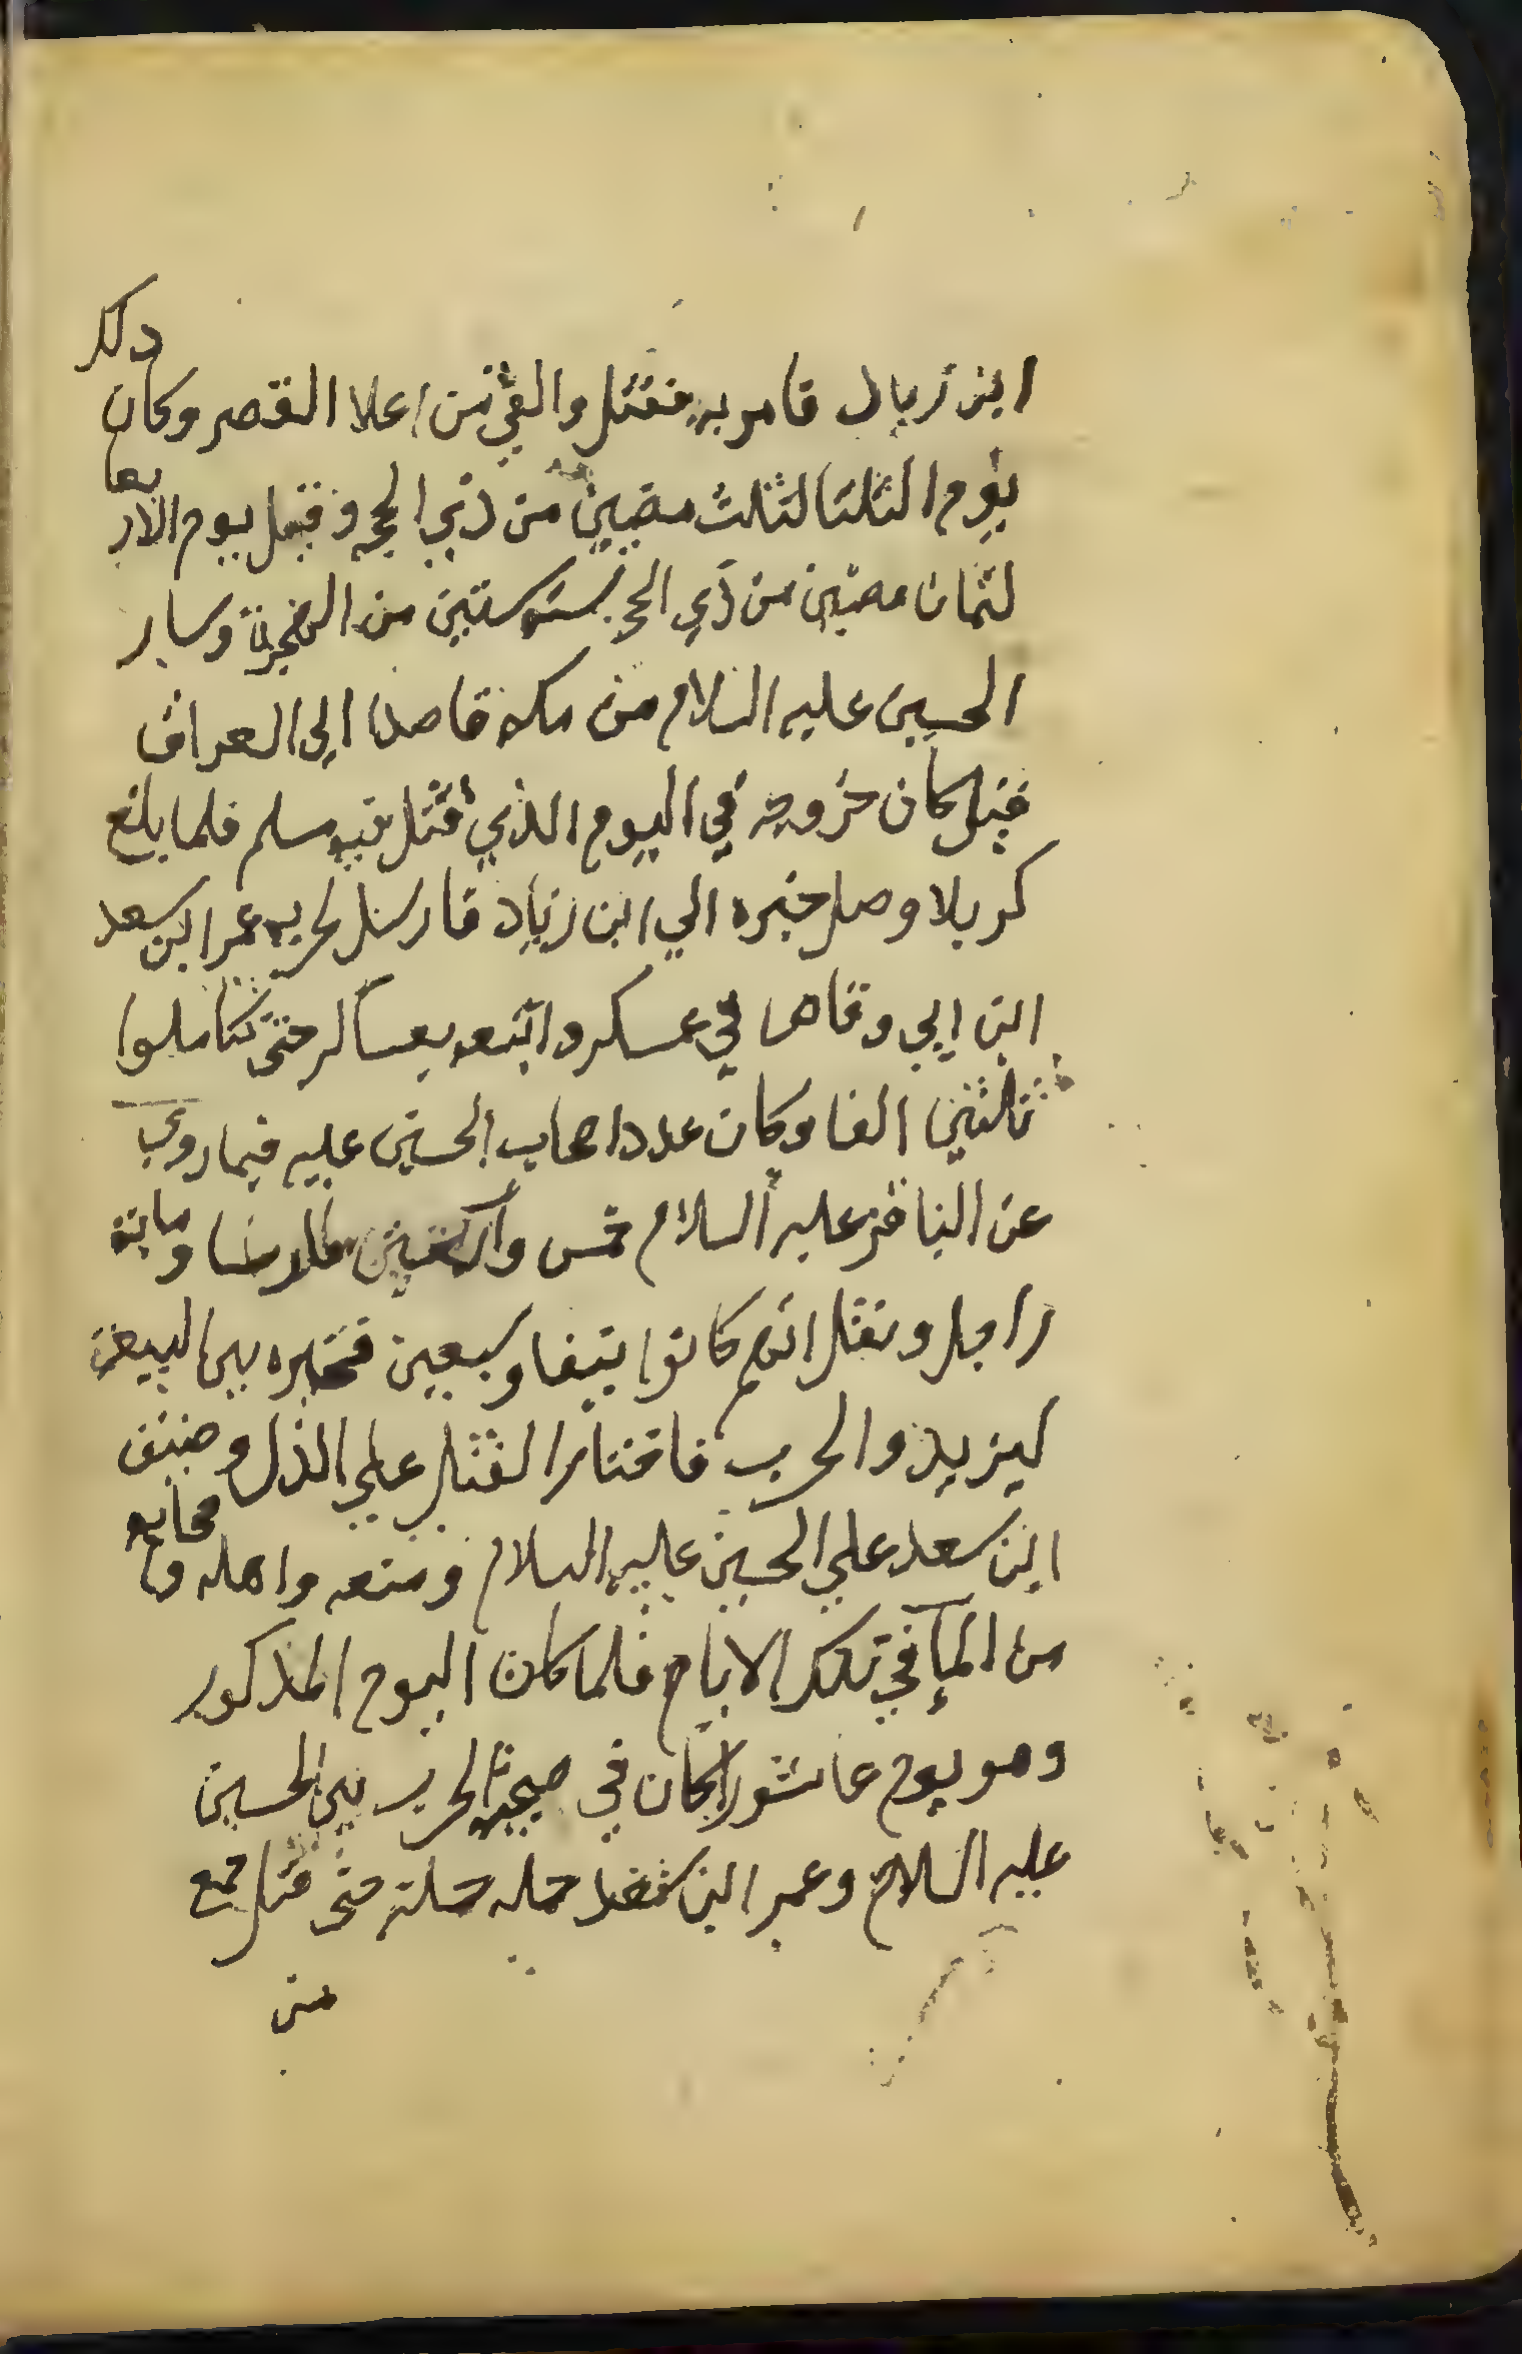 ابن زياد فامر به فقتل والقي من اعلا القصر وكان ذلك
يوم الثلثا لثلث مضين من ذي الحجه وقيل يوم الاربعا
لثمان مضين من ذي الحجه سنه ستين من الهجرة وسار
الحسين عليه السلام من مكه قاصدا الي العراق
قيل كان خروجه في اليوم الذي قتل فيه مسلم فلما بلغ
كربلا وصل خبره الي ابن زياد فارسل لحربه عمر ابن سعد
ابن ابي وقاص في عسكر واتبعه بعساكر حتى تكاملوا
ثلثين الفا وكان عدد اصحاب الحسين عليه فيما روي
عن الباقر عليه السلام خمس واربعين فارسا ومايه
راجل ونقل انهم كانوا نيفا وسبعين فخيره بين البيعة
ليزيد والحرب فاختار القتل علي الذل وضيق
ابن سعد علي الحسين عليه السلام ومنعه واهله وصحابه
من المآ في تلك الايام فلما كان اليوم المذكور
وهو يوم عاشورا كان في صبيحته الحرب بين الحسين
عليه السلام وعمر ابن سعد حمله حملة حتى قتل جمع
من